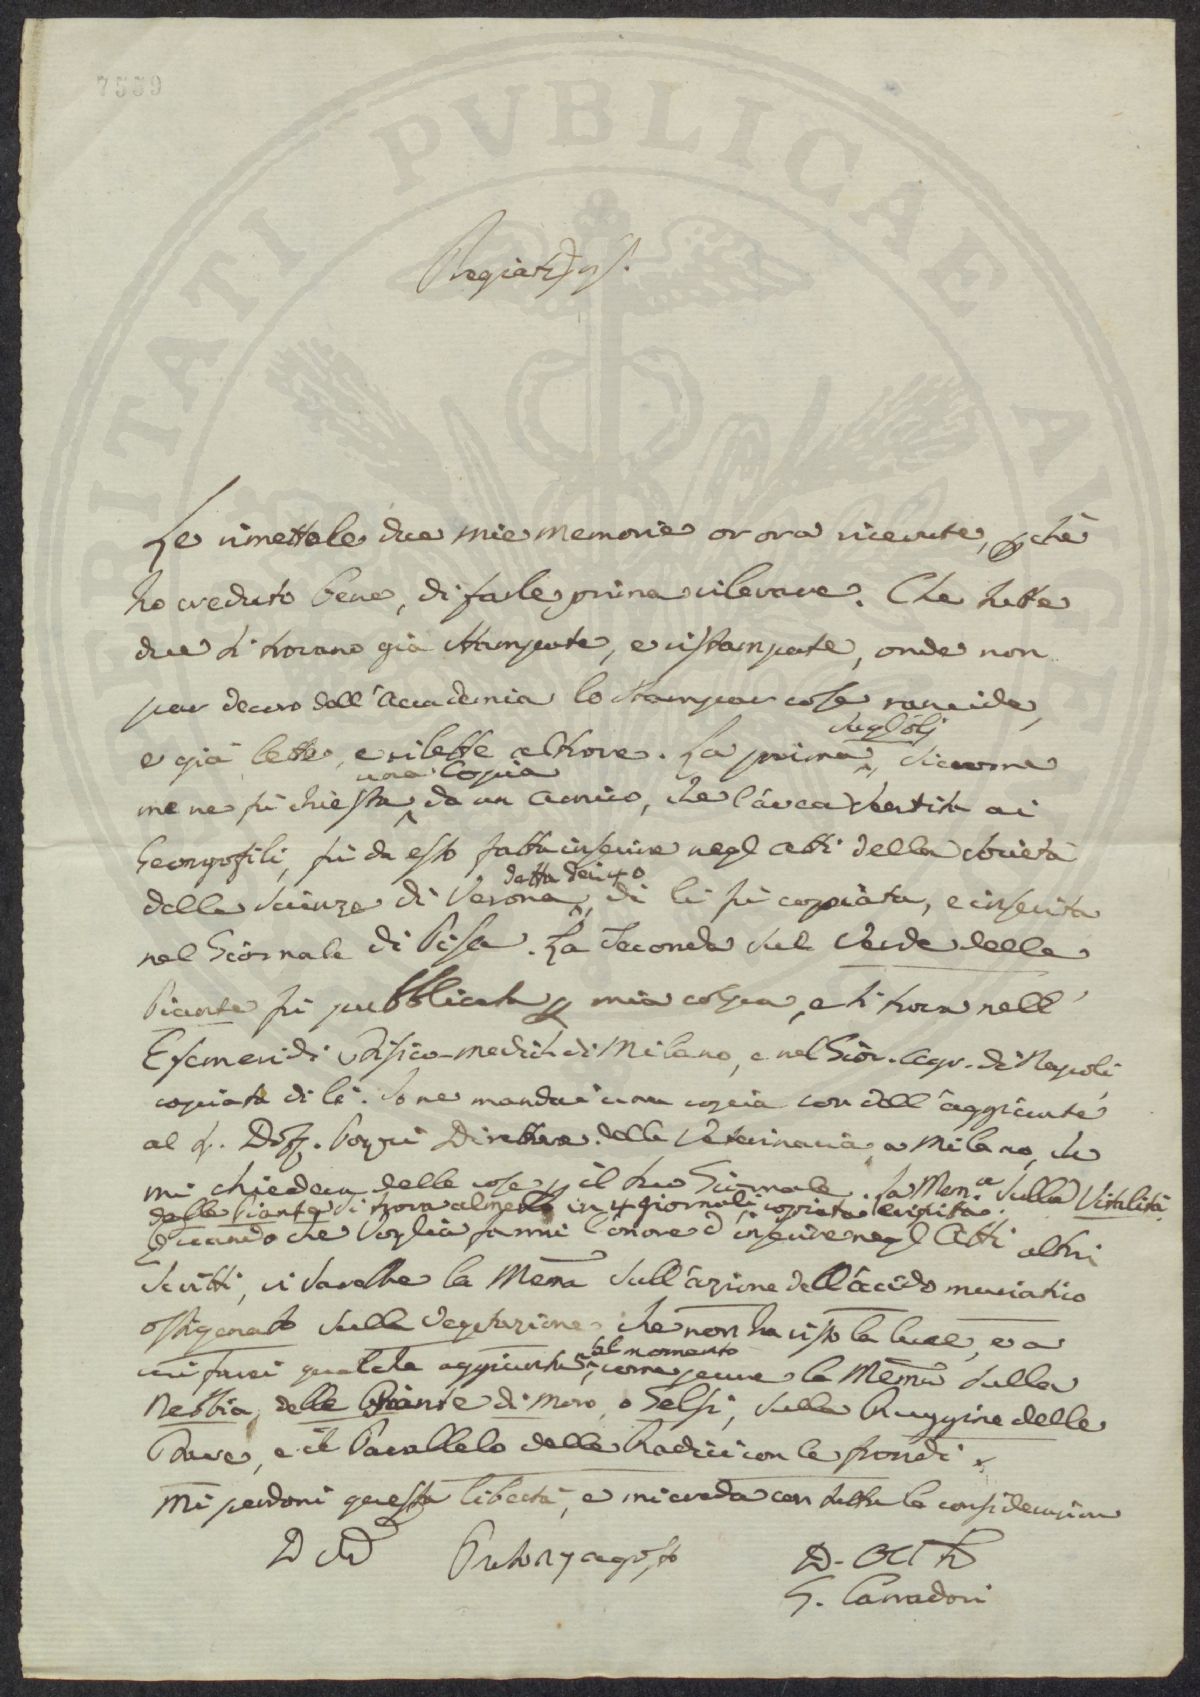 7559
PVBLICAE
Le rimetto le due mie memorie or ora ricevute, che
ho creduto bene, di farle prima rilevare. Che tutte
due si trovano già stampate, e ristampate, onde non
par decoro dell'Accademia lo stampar cose rancide,
e già lette, e rilette altrove. La prima sugl'Olj, siccome
me ne fù chiesta una copia da un amico, che l'avea sentita ai
Georgofili, fù da esso fatta inserire negl'Atti della Società
delle Scienze di Verona detta dei 40, di lì fù copiata, e inserita
nel Giornale di Pisa. La Seconda sul Verde delle
Piante fù pubblicata mia colpa, e si trova nell'
Efemeridi Fisico-mediche di Milano, e nel Gior. Agr. di Napoli
copiata di lì. Io ne mandai una copia con dell'aggiunte
al S. Pozzi Direttore della Veterinaria a Milano, che
mi chiedeva delle cose il suo Giornale. La Mem.a sulla Vitalità
delle Piante si trova almeno in 4 giornali copiata
Quando che Voglia farmi l'onore d'inserire negl'Atti altri
Scritti, vi sarebbe la Mem.a sull'azione dell'acido muriatico
ossigenato sulla Vegetazione che non ha visto la luce, e a
cui farei qualche aggiunta, al momento come pure la Mem.a sulla
Nebbia delle Piante di Moro, o Gelsi, sulla Ruggine delle
Biave, e il Parallelo delle Radici con le frondi.
Mi perdoni questa libertà, e mi creda con tutta la considerazione
Prato 17 agosto
G. Carradori